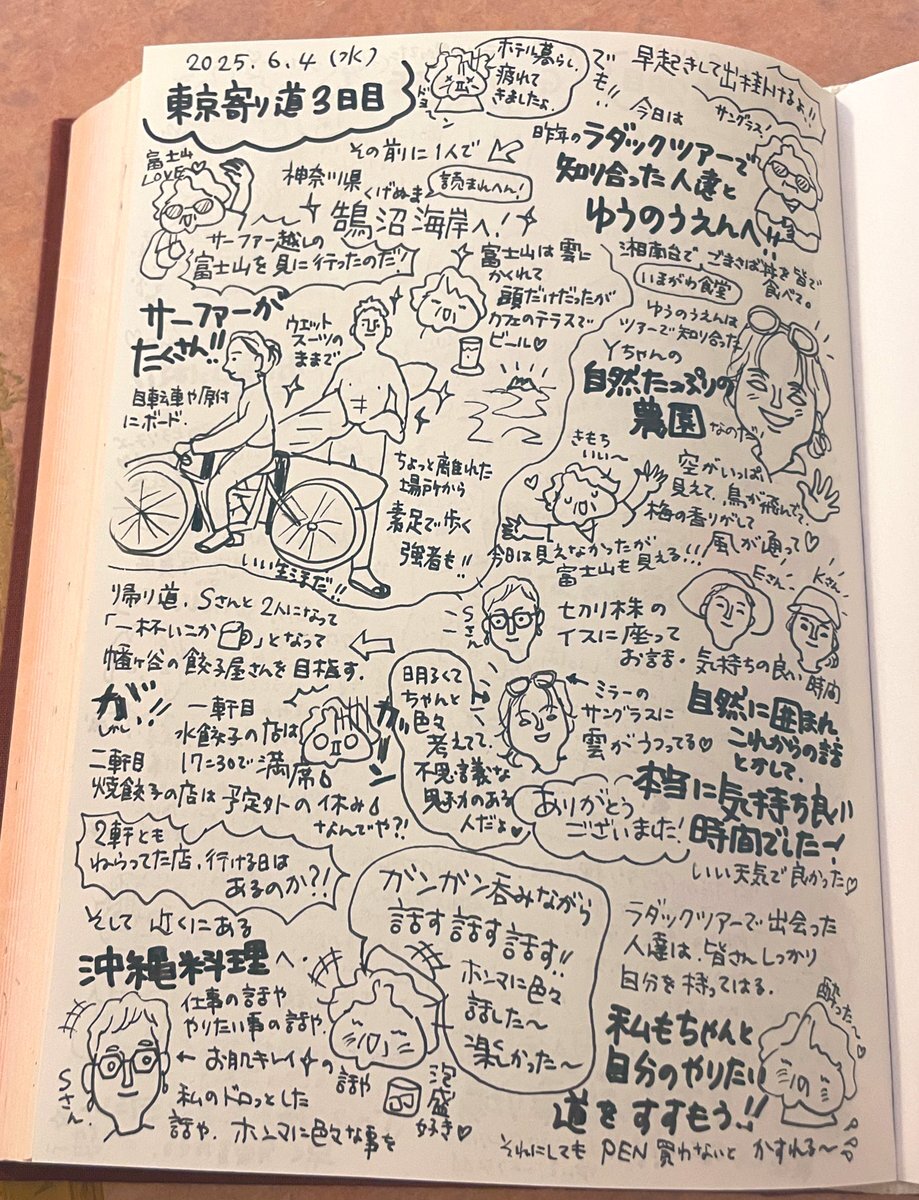 2025.6.4 (水)
東京寄り道3日目
ホテル暮らし
疲れて
きましたよ。
ドヨーン
でも!!
早起きして出掛けるよ!!
その前に1人で
神奈川県
くげぬま
読まれへん!
鵠沼海岸へ!
富士山
LOVE♡
サーファー越しの
富士山を見に行ったのだ!
サーファーが
たくさん!!
ウエット
スーツの
ままで
自転車や原付
にボード.
富士山は雲に
かくれて
頭だけだったが
カフェのテラスで
ビール♡
ちょっと離れた
場所から
素足で歩く
強者も!!
いい生きざまだ!!
サングラス!
今日は
昨年のラダックツアーで
知り合った人達と
ゆうのうえんへ!!
湘南台で、ごまさば丼を皆で
食べて。
いまがわ食堂
ゆうのうえんは
ツアーで知り合った
Yちゃんの
自然たっぷりの
農園なのだ!
きもち
いい〜
空がいっぱい
見えて、鳥が飛んでて、
梅の香りがして
風が通って♡
今日は見えなかったが
富士山も見える!!!
Sさん
切り株の
イスに座って
お話。
Eさん
Kさん
気持ちの良い
時間
自然に囲まれ
これからの話
とかして、
本当に気持ち良い
時間でした〜!
いい天気で良かった♡
ミラーの
サングラスに
雲がうつってる♡
明るくて
ちゃんと
色々
考えてて、
不思議な
魅力のある
人だよ♥
ありがとう
ございました!
帰り道、Sさんと2人になって
「一杯いこか」となって
幡ヶ谷の餃子屋さんを目指す.
が、
しかし
!!
一軒目
水餃子の店は
17:30で満席
ガーン
二軒目
焼餃子の店は予定外の休み
なんでや?!
2軒とも
ねらってた店、行ける日は
あるのか?!
そして 近くにある
沖縄料理へ.
仕事の話や
やりたい事の話や、
← お肌キレイの話や
私のドロッとした
話や、ホンマに色々な事を
Sさん.
泡盛
好き♥
ガンガン呑みながら
話す話す話す!!
ホンマに色々
話した〜
楽しかった〜
ラダックツアーで出会った
人達は、皆さんしっかり
自分を持ってはる.
酔った〜
私もちゃんと
自分のやりたい
道をすすもう!!
それにしても PEN 買わないと かすれる〜